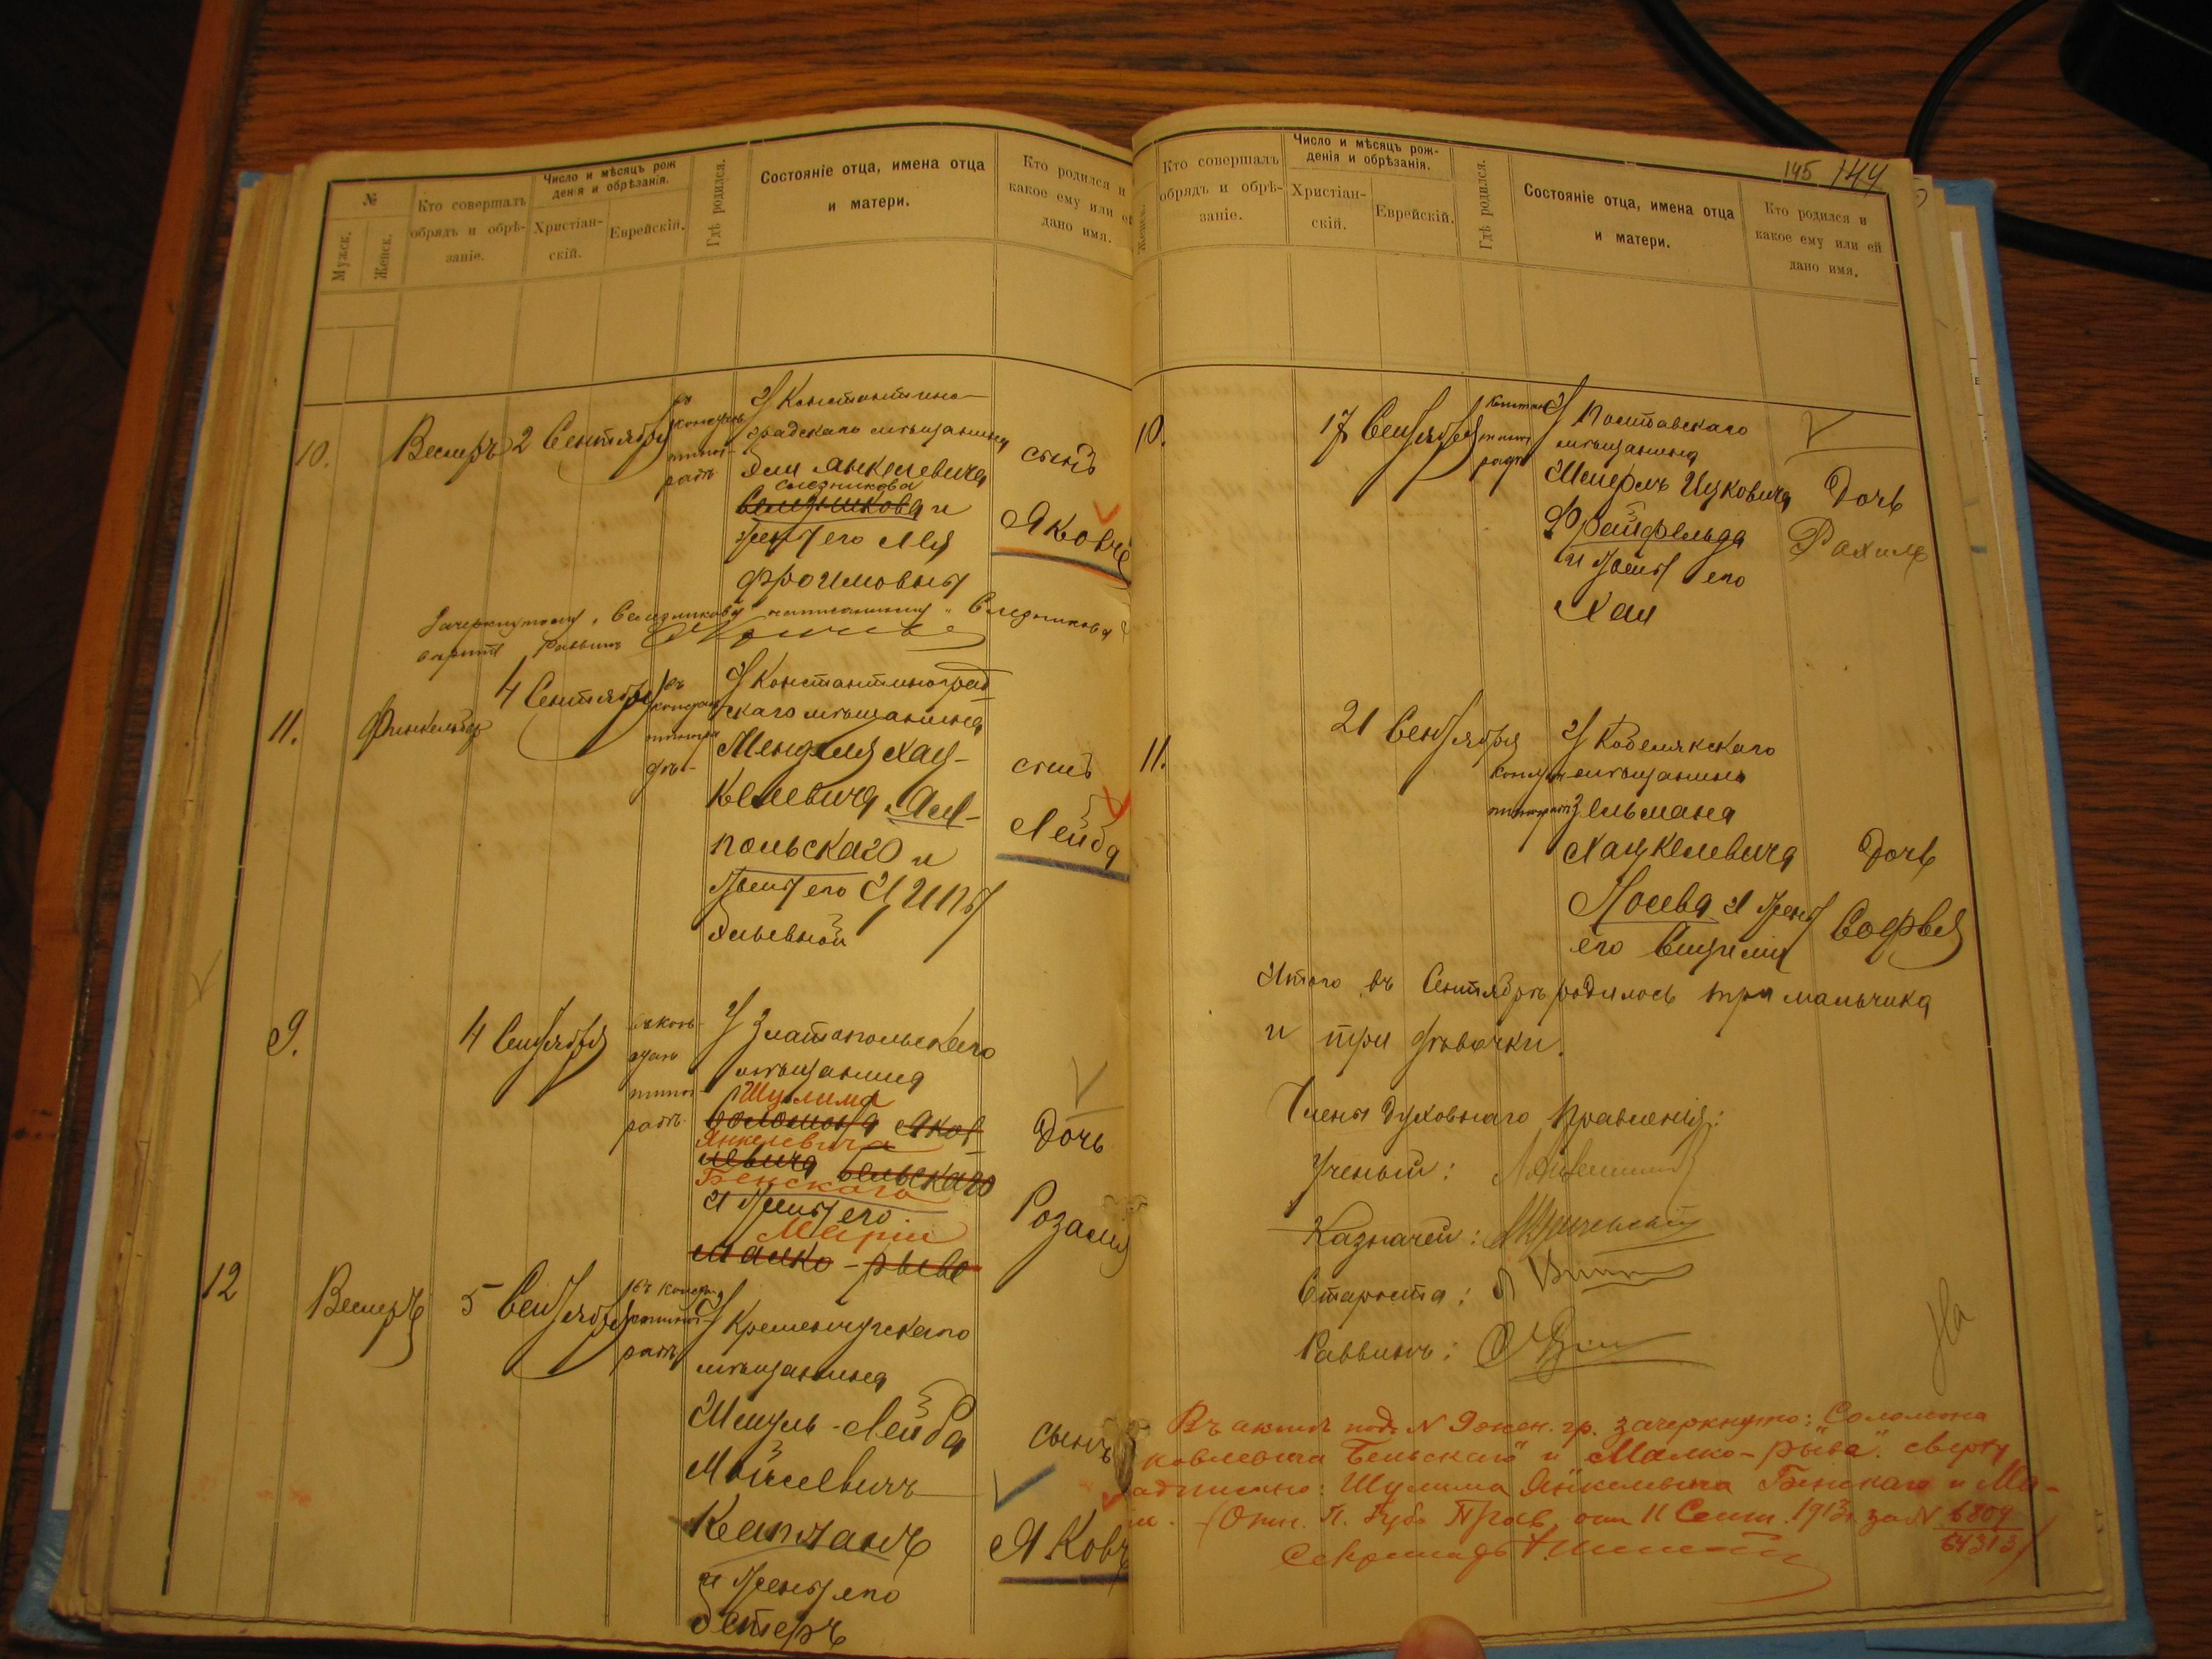 №
Мужск.
Женск.
Кто совершалъ
обрядъ и обрѣ-
заніе.
Число и мѣсяцъ рож
денія и обрѣзанія.
Христіан-
скій.
Еврейскій.
Гдѣ родился.
Состояніе отца, имена отца
и матери.
Кто родился и
какое ему или ей
дано имя.
10.
Веллеръ
2 Сентября
въ
констан
тиног-
радѣ
У Константино-
градскаго мѣщанина
Эли Янкелевича
Следникова
и
жены его Леи
Фроимовны
сынъ
Яковъ
Зачеркнутому
написанному „Следникова"
вѣрить Раввинъ
11.
Финкельберг
4 Сентября
въ
констан
тиногра
дѣ-
У Константиноград
скаго мѣщанина
Менделя Хац-
келевича Ям-
польскаго и
жены его Ципы
Эльевной
сынъ
Лейба
9.
4 Сентября
въ кон-
стан
тиног-
радѣ
У Златопольскаго
мѣщанина
Шулима
Соломона Яков
Янкелевича
левича Бельскаго
Бенскаго
и жены его
Маріи
Малко-рыве
Дочь
Розалія
12
Веллеръ
5 Сентября
въ конста
нтиног-
радѣ
У Кременчугскаго
мѣщанина
Шмуль-Лейба
Мойсеевичъ
Капланъ
и жены его
Эстеръ
сынъ
Яковъ
Женск.
Кто совершалъ
обрядъ и обрѣ-
заніе.
Число и мѣсяцъ рож-
денія и обрѣзанія.
Христіан-
скій.
Еврейскій.
Гдѣ родился.
Состояніе отца, имена отца
и матери.
145 144
Кто родился и
какое ему или ей
дано имя.
10.
17 Сентября
констан
тиног
радѣ
У Полтавскаго
мѣщанина
Шмерль Ицковича
Фрайфельда
и жены его
Хаи
Дочь
Рахиль
11.
21 Сентября
констан
тиноградѣ
У Кобелякскаго
мѣщанина
Зельмана
Хацкелевича
Лоева и жены
его
Дочь
Софья
Итого въ Сентябрѣ родилось три мальчика
и три дѣвочки.
Члены Духовнаго Правленія:
Ученый:
Казначей:
Староста:
Раввинъ:
На
Въ актѣ подъ N 9 жен. гр. зачеркнуто: „Соломона
ковлевича Бельскаго" и „Малко-рыва". сверху
адписано: Шулима Янкелевича Бенскаго и Ма-
іи. (Отн. П. Губ. Прав. от 11 Сент. 1913г за N 6809
64313)
Секретарь